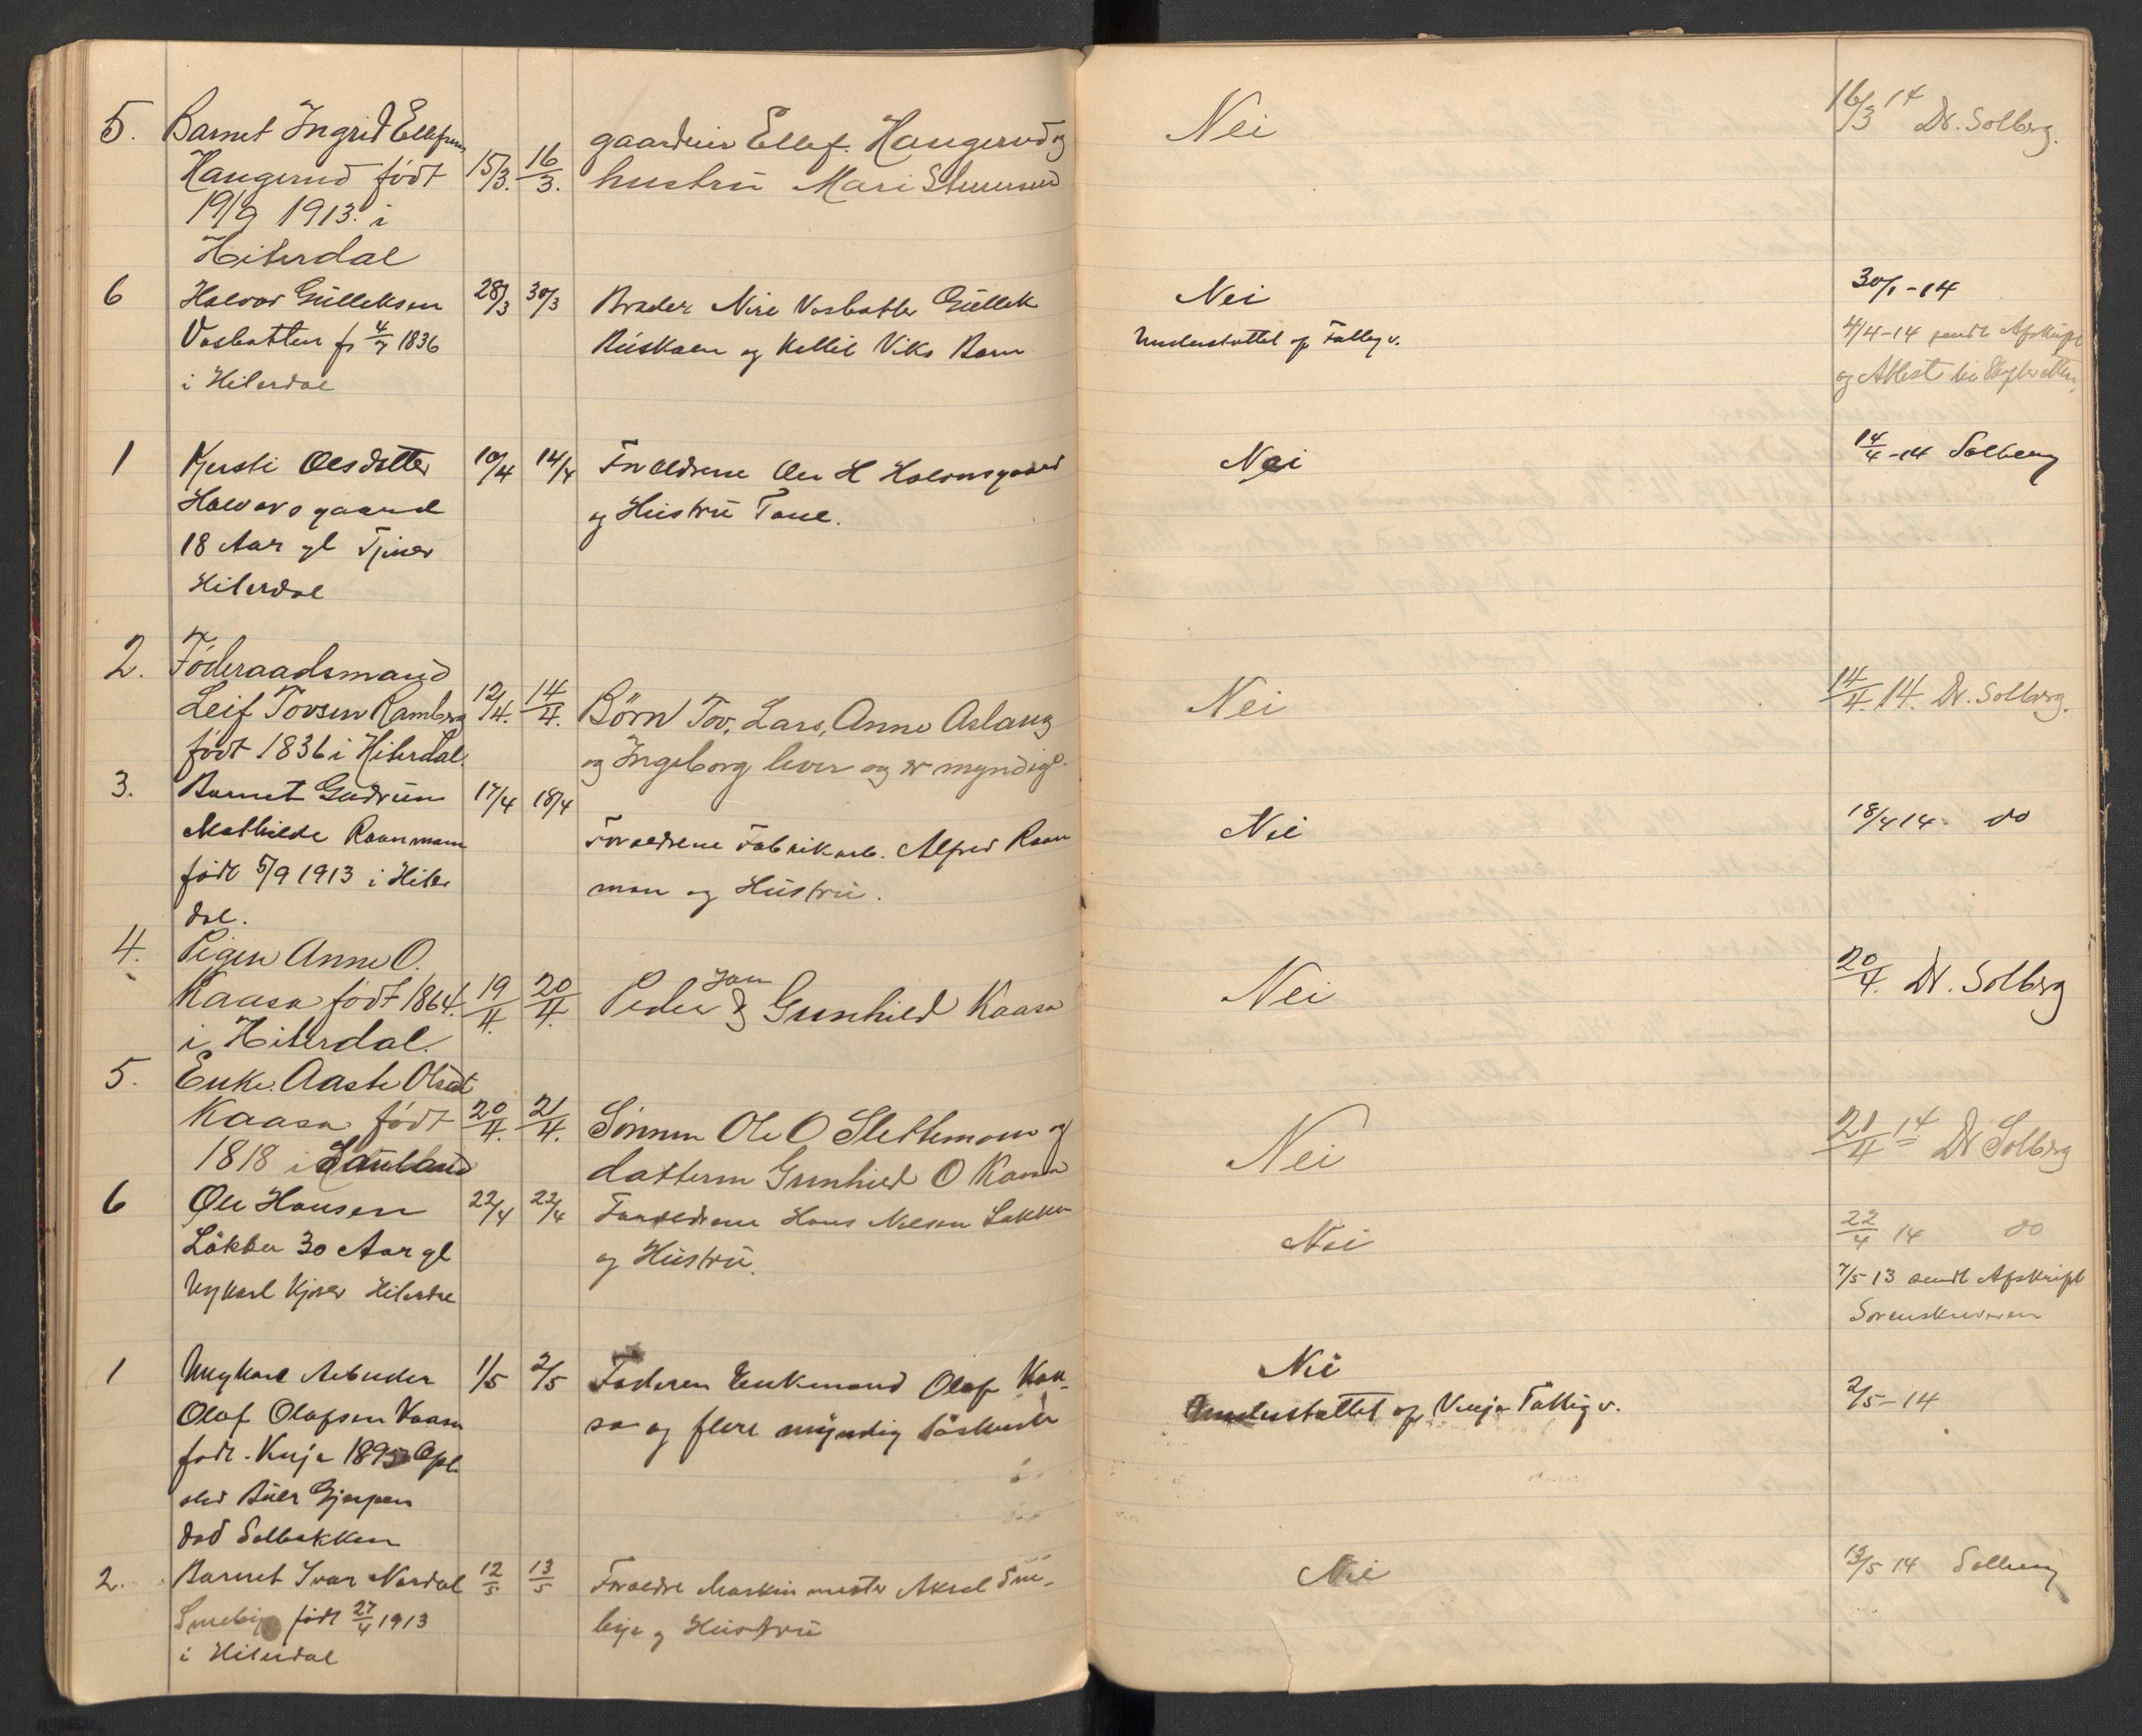 5. Barnet Ingrid Ellefsen
Haugerud født 15/3. 16/3. gaardeier Ellef. Haugerud og
19/9 1913. i hustru Mari
Hiterdal
Nei
16/3 14 Dr. Solberg.
6 Halvor Gulleksen 28/3 30/3 Brader Nire Vasbotten Gullek
Vasbotten f. 4/7 1836 og Kettil Viks Barn
i Hiterdal
Nei
Understøttet af Fattigv.
30/1-14
4/4-14 sendt Afskript
og Attest
1 Kjersti Olsdatter 10/4 14/4 Forældrene Ole H Halvorsgaard
Halvorsgaard og Hustru Tone.
18 Aar gl Tjener
Hiterdal
Nei
14/4-14 Solberg
2. Föderaadsmand
Leif Tovsen Ramberg 12/4. 14/4. Börn Tov, Lars, Anne Aslaug
født 1836 i Hiterdal. og Ingeborg lever og er myndige.
Nei
14/4. 14. Dr. Solberg.
3. Barnet Gudrun 17/4 18/4
Mathilde Raanmann Forældrene Fabrikarb. Alfred Raan
født 5/9 1913 i Hiter man og Hustru.
dal.
Nei
18/4 14 do
4. Pigen Anne O.
Kaasa født 1864. 19/4. 20/4. Peder Jon & Gunhild Kaasa
i Hiterdal.
Nei
20/4. Dr. Solberg
5. Enke. Aaste Olsdt
Kaasa født 20/4. 21/4. Sønnen Ole O Slettemoen og
1818 i Sauland datteren Gunhild O Kaasa
Nei
21/4 14 Dr Solberg
6 Ole Hansen 22/4 22/4 Forældrene Hans Nelsen Løkken
Løkken 30 Aar gl og Hustru.
Ungkarl Hiterdal
Nei
22/4 14 do
7/5 13 sendt Afskript
Sorenskriveren
1 Ungkarl Arbeider 1/5 2/5 Faderen Enkemand Olaf Kaa-
Olaf Olafsen Kaasa sa og flere myndig Søskende
født. Vinje 1895 Oph.
sted Gjerpen
død Solbakken
Nei
Understøttet af Vinje Fattigv.
2/5-14
2. Barnet Ivar Nordal 12/5 13/5 Forældre Maskinmester Aksel Sme-
Smebye født 27/4 1913 bye og Hustru
i Hiterdal
Nei
13/5 14 Solberg